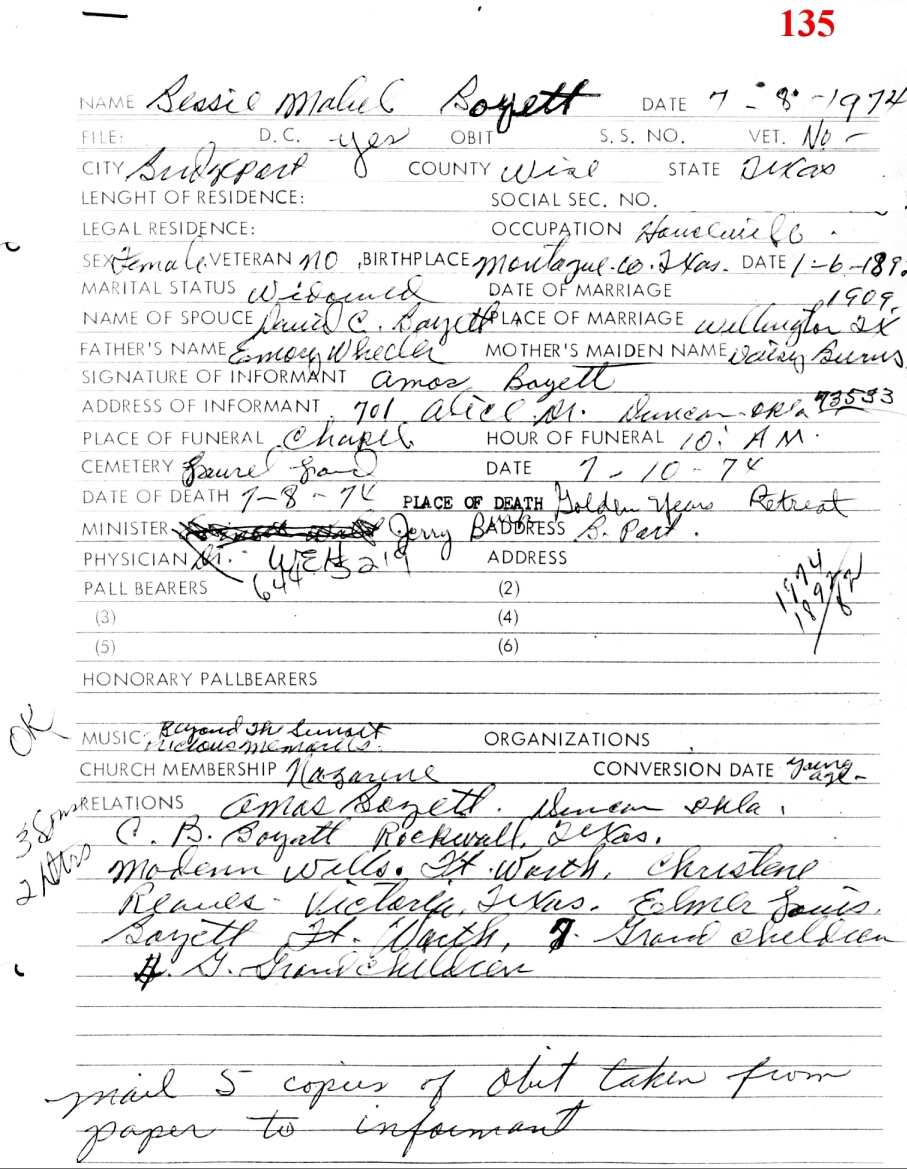 135
NAME Bessie Mabel Boyett DATE 7-8-1974
FILE: D.C. yes OBIT S.S. NO. VET. No -
CITY Bridgeport COUNTY Wise STATE Texas
LENGHT OF RESIDENCE: SOCIAL SEC. NO.
LEGAL RESIDENCE: OCCUPATION Housewife
SEX Female VETERAN NO , BIRTHPLACE Montague Co. Texas. DATE 1-6-189
MARITAL STATUS Widowed DATE OF MARRIAGE 1909
NAME OF SPOUCE David C. Boyett PLACE OF MARRIAGE Wellington TX
FATHER'S NAME Emory Wheeler MOTHER'S MAIDEN NAME Daisy Burns
SIGNATURE OF INFORMANT Amos Boyett
ADDRESS OF INFORMANT 701 Alice Dr. Duncan Okla 73533
PLACE OF FUNERAL Chapel HOUR OF FUNERAL 10: AM.
CEMETERY Laurel Land DATE 7-10-74
DATE OF DEATH 7-8-74 PLACE OF DEATH Golden Years Retreat
MINISTER Jerry ADDRESS B. Port.
PHYSICIAN Dr. ADDRESS
644-5219
PALL BEARERS (2)
1974
1892
82
(3) (4)
(5) (6)
HONORARY PALLBEARERS
OK
MUSIC: Beyond The Sunset
Precious memories. ORGANIZATIONS
CHURCH MEMBERSHIP Nazarene CONVERSION DATE young age-
3 Sons
2 Dtrs
RELATIONS Amos Boyett. Duncan Okla.
C. B. Boyett Rockwall, Texas.
Modenn Wells. Ft. Worth, Christene
Reaves - Victoria, Texas. Elmer Louis.
Boyett Ft. Worth, 7. Grand children
4. G. Grand children
mail 5 copies of Obit taken from
paper to informant